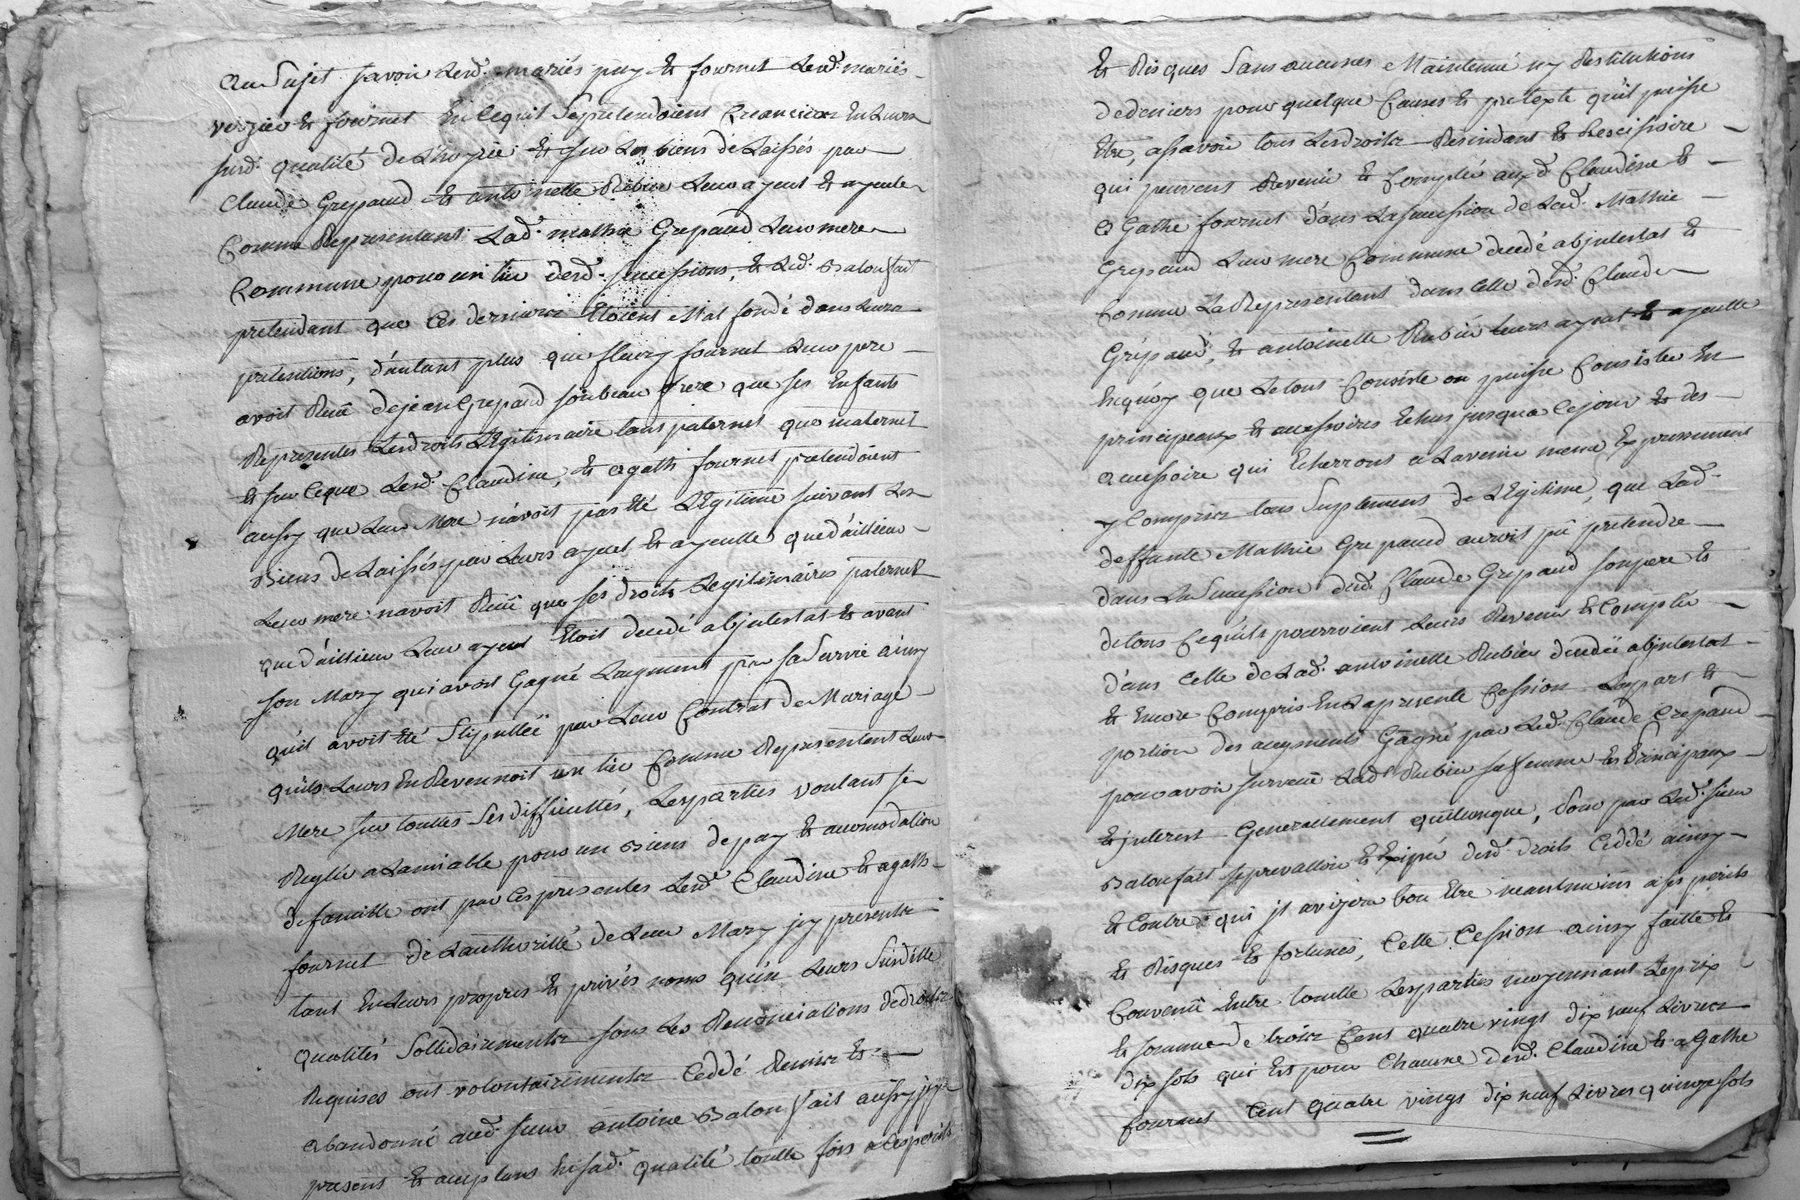 Au Sujet Savoir Lesd. mariés puy & fournet Lesd. mariés
verzier & fournet En ce quil Se pretendoient Creanciers En Leurs
susd. qualité de & sur Les biens delaissés par
Claude Grepaud & antoinette Rubin Leur ayeul & ayeule
Comme Representant Lad. mathie Grepaud Leur mere
Commune pour un tier desd. successions, & Led. Balonfait
pretendant que Ces derniers Etoient Mal fondé dans Leurs
pretentions, d'autant plus que fleury fournet Leur pere
avoit Reçû de jean Grepaud son beau frere que ses Enfants
Representes Les droits Légitimaire tant paternel que maternel
& sur ce que Lesd. Claudine, & agathe fournet pretendoient
aussy que Leur Mere n'avoit pas été Légitimé suivant Les
Biens delaissés par Leurs ayeul & ayeulle que d'aillieur
Leur mere n'avoit Reçû que ses droits Legitimaires paternel
que d'aillieur Leur ayeul Etoit decedé abjntestat & avant
son Mary qui avoit Gagné Laugment par Sa Survie ainsy
quil avoit été Stipullé par Leur Contrat de Mariage
quils Leurs En Revennoit un tier Comme Representent Leur
Mere sur touttes Ses difficultés, Les parties voulant se
Regller a Lamiable pour un Biens de paix & acomodation
de famille ont par Ces presentes Lesd. Claudine & agathe
fournet de Lauthorité de Leur Mary jcy presents
tant En Leurs propres & privés noms qu'en Leurs Susditte
qualités Sollidairements sous Les Renonciations de droits
Requises ont volontairements Ceddé Remise &
abandonné aud. sieur antoine Balonfait aussy jcy
present & aceptant En sad. qualité toutte fois a Ses perils
& Risques Sans aucunes Maintenue ny Restitutions
de deniers pour quelque Causes & pretexte qu'il puisse
Etre, assavoir tous Les droits Rescindant & Rescissoire
qui peuvent Revenir & Compéter auxd. Claudine &
agathe fournet dans La succession de Lad. Mathie
Grepaud Leur mere Commune decedé abjntestat &
Comme La Representant dans Celle dud. Claude
Grépaud, & antoinette Rubin Leurs ayeul & ayeulle
En quoy que Le tout Consiste ou puisse Consister En
principeaux & accessoires Echus jusqua Cejour & des
accessoire qui Echerront a Lavenir meme Expressement
y Compris tous Suplement de Légitime, que Lad.
deffunte Mathie Grepaud auroit pû pretendre
dans La Succession dud. Claude Grepaud son pere &
de tous Ce qu'ils pourroient Leurs Revenir & Compéter
dans Celle de Lad. antoinette Rubin decedée abjntestat
& Encore Compris En La presente Cession La part &
portion des augments Gagné par Led. Claude Grepaud
pour avoir survecû Lad. Rubin sa femme & Principaux
& jnterest Generallement quelconque, Pour par Led. sieur
Balonfait se prevalloir & Exiger desd. droits Ceddé ainsy
& Contre qui jl avizera bon Etre neantmoins a ses perils
& Risques & fortunes, Cette Cession ainsy faitte &
Convenû Entre toutte Les parties moyennant Le prix
& somme de trois Cent quatre vingt dix neuf Livres
dix sols qui Est pour Chacune desd. Claudine & agathe
fournet Cent quatre vingt dix neuf Livres quinze sols